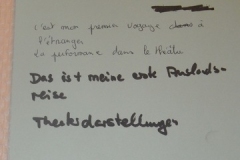 c'est mon premier voyage à
l'étranger
La performance dans le théâtre
Das ist meine erste Auslands-
reise
Theaterdarstellungen